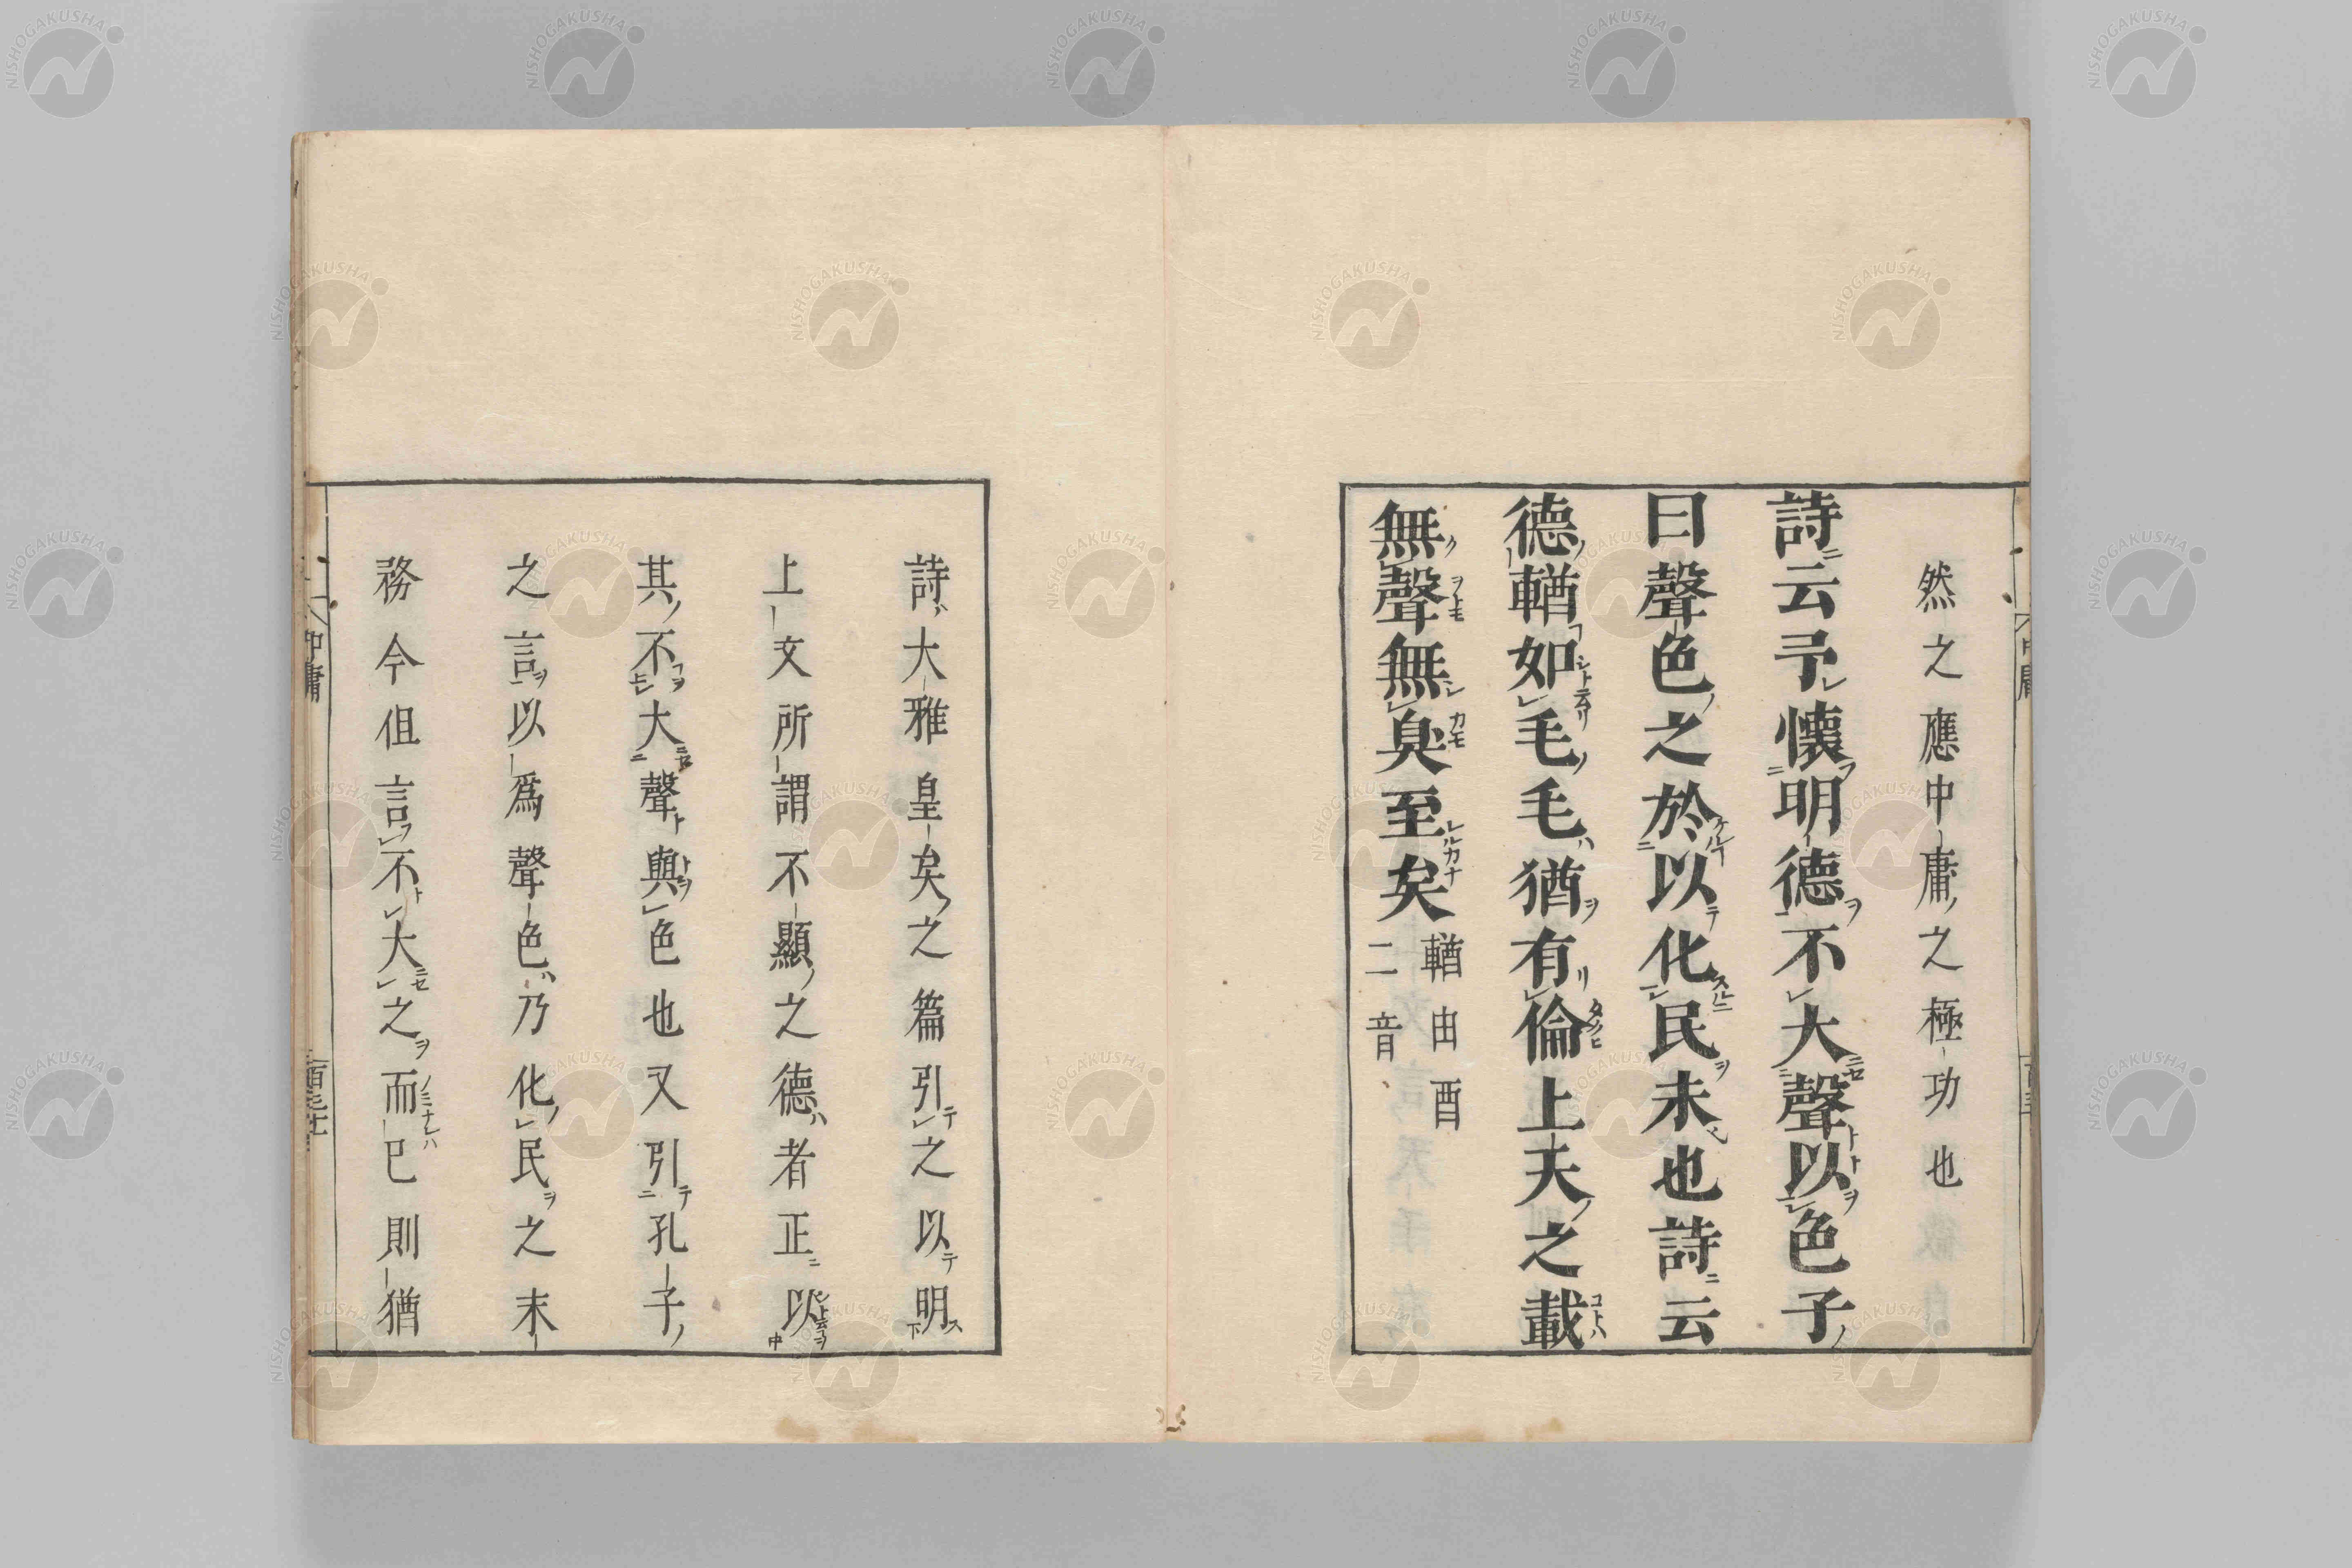 然之應中庸之極功也
詩云予懷明德不大聲以色子
曰聲色之於以化民末也詩云
德輶如毛毛猶有倫上天之載
無聲無臭至矣
輶由酉
二音
詩大雅皇矣之篇引之以明
上文所謂不顯之德者正以
其不大聲與色也又引孔子
之言以爲聲色乃化民之末
務今但言不大之而已則猶
中庸
NISHOGAKUSHA